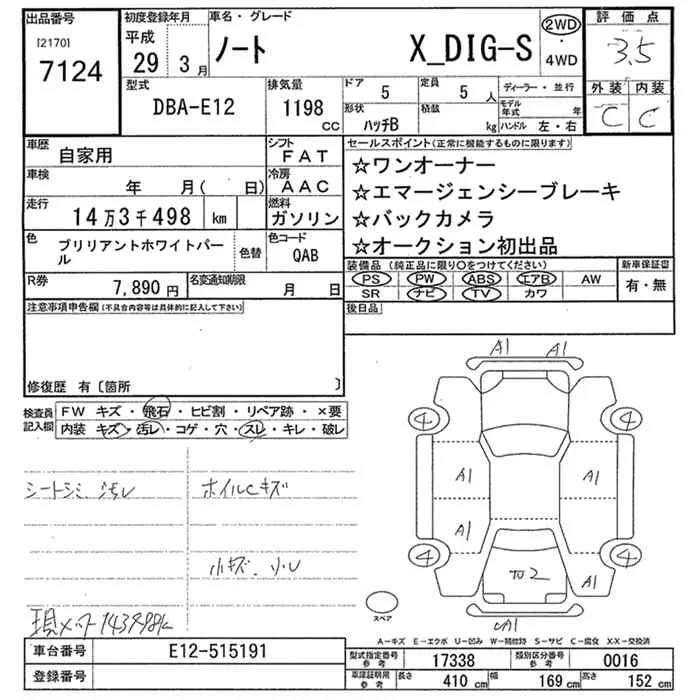 出品番号
[2170]
7124
初度登録年月
平成
29年 3月
車名・グレード
ノート X_DIG-S
2WD
・
4WD
評価点
3.5
外装 内装
C C
型式
DBA-E12
排気量
1198
CC
ドア 5
定員 5 人
形状 ハッチB
積載 kg
ディーラー・並行
モデル年式 年
ハンドル 左・右
車歴 自家用
シフト FAT
車検 年 月( 日)
冷房 AAC
走行 14万3千498 km
燃料 ガソリン
色 ブリリアントホワイトパール
色替
色コード QAB
R券 7,890円
名変通知期限 月 日
セールスポイント(正常に機能するものに限ります)
☆ワンオーナー
☆エマージェンシーブレーキ
☆バックカメラ
☆オークション初出品
装備品(純正品に限り○をつけてください)
PS PW ABS エアB AW
SR ナビ TV カワ
新車保証書
有・無
後日品
注意事項申告欄(不具合内容等は具体的に記入して下さい)
修復歴 有〔箇所 〕
検査員記入欄
FW キズ・飛石・ヒビ割・リペア跡・×要
内装 キズ・汚レ・コゲ・穴・スレ・キレ・破レ
シートシミ 汚レ
ホイルCキズ
小キズ、小U
現メーター143498k
A1 A1
4 4
A1 A1
A1
4 4
A1
A1
スペア
A-キズ E-エクボ U-凹み W-補修跡 S-サビ C-腐食 X・X-交換済
車台番号 E12-515191
登録番号
型式指定番号 参考 17338
類別区分番号 参考 0016
車庫証明用 参考 長さ 410 cm 幅 169 cm 高さ 152 cm